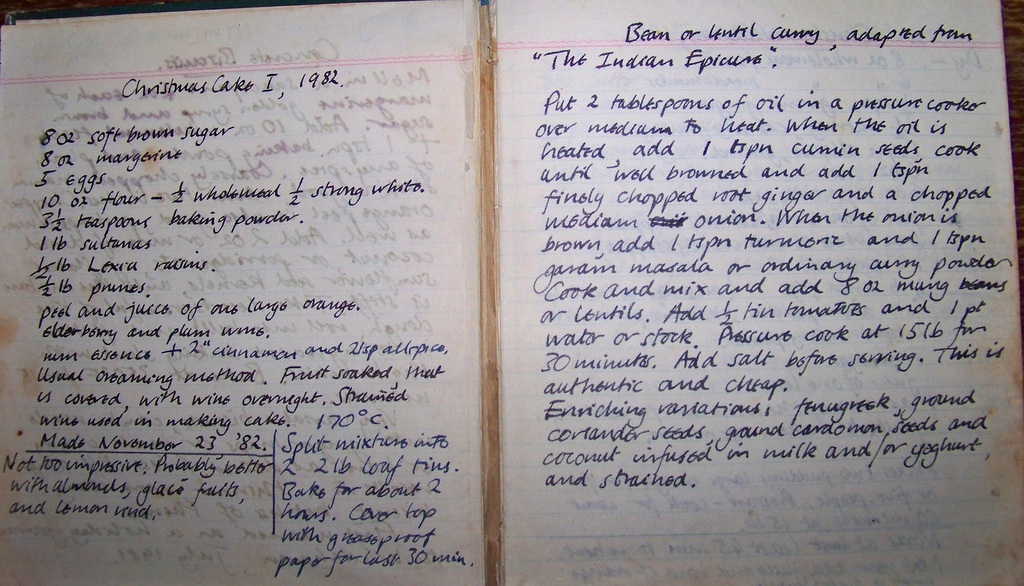 Christmas Cake I, 1982.
8 oz soft brown sugar
8 oz margerine
5 eggs
10 oz flour – ½ wholemeal ½ strong white.
3½ teaspoons baking powder.
1 lb sultanas
½ lb Lexia raisins.
½ lb prunes.
peel and juice of one large orange.
elderberry and plum wine.
rum essence + 2" cinnamon and 2tsp allspice.
Usual creaming method. Fruit soaked, that
is covered, with wine overnight. Strained
wine used in making cake. 170°C.
Made November 23 '82.
Not too impressive. Probably better
with almonds, glacé fruits,
and lemon rind.
Split mixture into
2 2 lb loaf tins.
Bake for about 2
hours. Cover top
with greaseproof
paper for last 30 min.
Bean or lentil curry, adapted from
"The Indian Epicure".
Put 2 tablespoons of oil in a pressure cooker
over medium to heat. When the oil is
heated, add 1 tspn cumin seeds cook
until well browned and add 1 tspn
finely chopped root ginger and a chopped
medium onion. When the onion is
brown add 1 tspn turmeric and 1 tspn
garam masala or ordinary curry powder
Cook and mix and add 8 oz mung beans
or lentils. Add ½ tin tomatoes and 1 pt
water or stock. Pressure cook at 15 lb for
30 minutes. Add salt before serving. This is
authentic and cheap.
Enriching variations, fenugreek, ground
coriander seeds, ground cardomon seeds and
coconut infused in milk and/or yoghurt,
and strained.